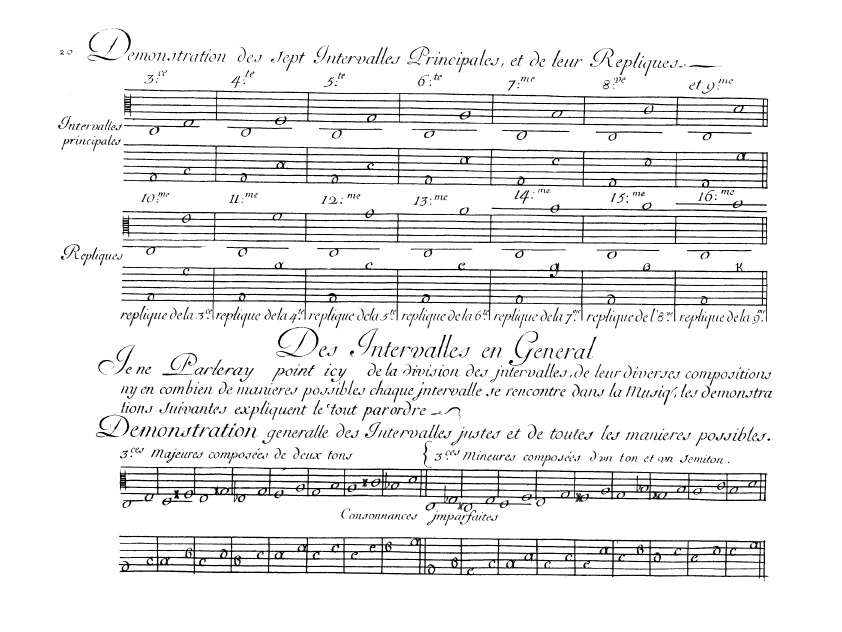 20 Demonstration des sept Intervalles Principales, et de leur Repliques.
3.ce 4.te 5.te 6.te 7.me 8.ve et 9.me
Intervalles principales
10.me 11.me 12.me 13.me 14.me 15.me 16.me
Repliques
replique de la 3.ce replique de la 4.te replique de la 5.te replique de la 6.te replique de la 7.me replique de l'8.ve replique de la 9.me
Des Intervalles en General
Je ne Parleray point icy de la division des jntervalles, de leur diverses compositions
ny en combien de manieres possibles chaque jntervalle se rencontre dans la Musiq', les demonstra
tions suivantes expliquent le tout par ordre
Demonstration generalle des Intervalles justes et de toutes les manieres possibles.
3.ces Majeures composées de deux tons { 3.ces Mineures composées d'un ton et un semiton.
Consonnances jmparfaites